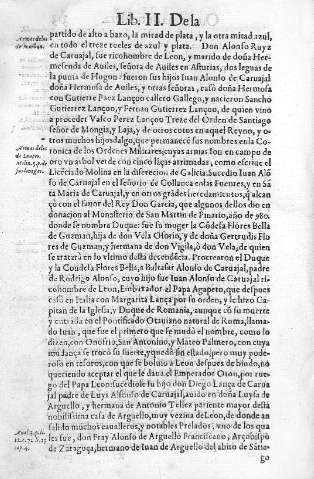 Lib. II. De la
partido de alto a baxo, la mirad de plata, y la otra mitad azul,
en todo el treze roeles de azul y plata. Don Alonso Ruyz
de Caruajal, fue ricohombre de Leon, y marido de doña Her-
mesenda de Auiles, señora de Auiles en Asturias, dos leguas de
la punta de Hugon: fueron sus hijos Iuan Alonso de Caruajal
doña Hermosa de Auiles, y otras señoras, casó doña Hermosa
con Gutierre Paez Lançou callero Gallego, y nacieron Sancho
Gutierrez Lançou, y Fernan Gutierrez Lançou, de quien vino
a proceder Vasco Perez Lançou Treze del Orden de Santiago
señor de Mongia, y Loja, y de otros cotos en aquel Reyno, y o-
tros muchos hijosdalgo, que permanece sus nombres en la Co-
ronica de los Ordenes Militares, cuyas armas son en campo de
oro vn arbol verde con cinco liças arrimadas, como escriue el
Licenciado Molina en la discrecion de Galicia. Sucedio Iuan Alō
so de Caruajal en el señorio de Collunca en las Fuentes, y en Sā
ta Maria de Caruajal, y en otros grādes heredamientos, q̃ alcan
çó con el fauor del Rey Don Garcia, que algunos dellos dio en
donacion al Monasterio de San Martin de Pinario, año de 980.
donde se nombra Duque: fue su muger la Cōdesa Flores Bella
de Guzman, hija de don Vela Osorio, y de doña Gertrudis Flo-
res de Guzman, y hermana de don Vigila, ò don Vela, de quien
se tratará en lo vltimo desta decendēcia. Procrearon el Duque
y la Condesa Flores Bella, a Baltasar Alonso de Caruajal, padre
de Rodrigo Alonso, cuyo hijo fue Iuan Alonso de Caruajal ri-
cohombre de Leon, Embaxador al Papa Agapeto, que despues
casó en Italia con Margarita Lança por su orden, y le hizo Ca-
pitan de la Iglesia, y Duque de Romania, aunque cō su muerte
y entrada en el Pontificado Otauiano natural de Roma, llama-
do Iuan, que fue el primero que se mudó el nombre, como lo
dizen, con Onofrio, San Antonino, y Mateo Palmerio, con cuya
mudança se trocó su suerte, y quedó sin estado, pero muy pode-
roso en tesoros, con que se boluio a Leon despues de biudo, no
queriendo aceptar el que le daua el Emperador Oton, por rue-
go del Papa Leon: sucediole su hijo don Diego Lança de Carua
jal padre de Luys Alfonso de Caruajal, auido en doña Luysa de
Arguello, y hermana de Antonio Tellez pariente mayor desta
nobilissima casa de Arguello, muy vezina de Leon, de donde an
salido muchos caualleros, y notables Prelados, vno de los qua
les fue, don Fray Alonso de Arguello Franciscano, Arçobispo
de Zaragoça, hermano de Iuan de Arguello del abito de Sātia-
go